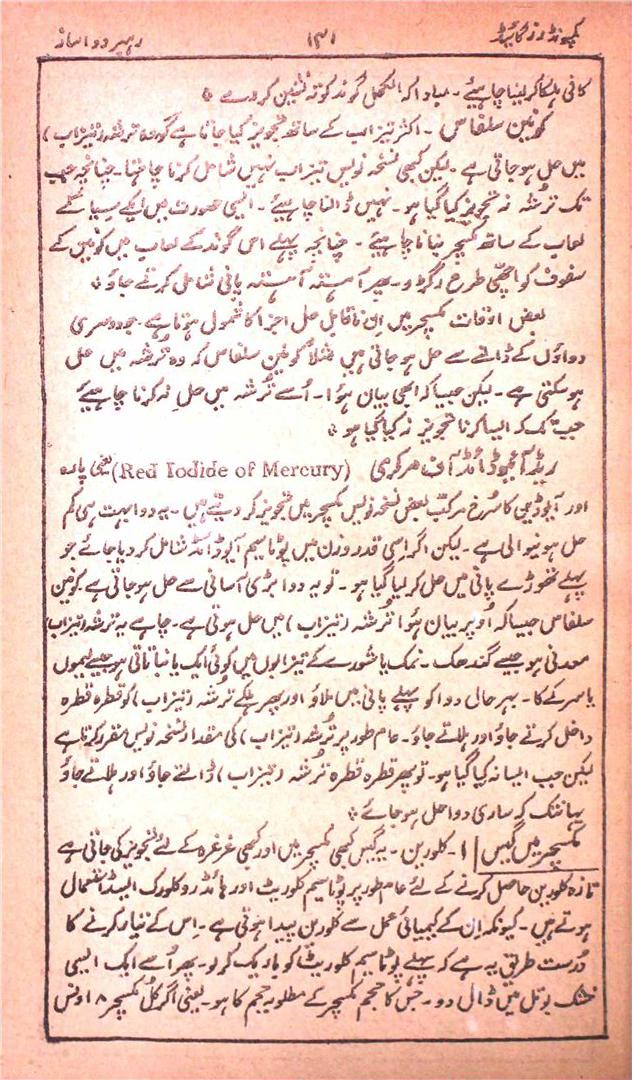 کمپونڈرز گائیڈ ۱۳۱ رہبر دواساز
کافی ہلکا کر لینا چاہیئے۔ مبادا کہ الکحل گوند کو تہ نشین کر دے ٭
کونین سلفاس۔ اکثر تیزاب کے ساتھ تجویز کیا جاتا ہے گو وہ ترشہ (تیزاب)
میں حل ہو جاتی ہے۔ لیکن کبھی نسخہ نویس تیزاب نہیں شامل کرنا چاہتا۔ چنانچہ جب
تک ترُشہ نہ تجویز کیا گیا ہو۔ نہیں ڈالنا چاہیئے۔ ایسی صورت میں ایسے
لعاب کے ساتھ مکسچر بنانا چاہیئے۔ چنانچہ پہلے اس گوند کے لعاب میں کونین کے
سفوف کو اچھی طرح رگڑو۔ پھر آہستہ آہستہ پانی شامل کرتے جاؤ ٭
بعض اوقات مکسچر میں ان ناقابل حل اجزا کا شمول ہوتا ہے۔ جو دوسری
دواؤں کے ڈالنے سے حل ہو جاتی ہیں مثلاً کونین سلفاس کہ وہ ترشہ میں حل
ہو سکتی ہے۔ لیکن جیسا کہ ابھی بیان ہؤا۔ اُسے ترُشہ میں حل نہ کرنا چاہیئے
جب تک کہ ایسا کرنا تجویز نہ کیا گیا ہو ٭
ریڈ آیوڈائڈ آف مرکری (Red Iodide of Mercury) یعنی پارہ
اور آیوڈین کا سُرخ مرکب بعض نسخہ نویس مکسچر میں تجویز کر دیتے ہیں۔ یہ دوا بہت ہی کم
حل ہونیوالی ہے۔ لیکن اگر اسی قدر وزن میں پوٹاسیم آیوڈائڈ شامل کر دیا جائے جو
پہلے تھوڑے پانی میں حل کر لیا گیا ہو۔ تو یہ دوا بڑی آسانی سے حل ہو جاتی ہے کونین
سلفاس جیسا کہ اُوپر بیان ہؤا ترُشہ (تیزاب) میں حل ہوتی ہے۔ چاہے یہ ترشہ (تیزاب)
معدنی ہو جیسے گندھک۔ نمک یا شورے کے تیزابوں میں کوئی ایک یا نباتاتی ہو جیسے لیموں
یا سرکے کا۔ بہر حال دوا کو پہلے پانی میں ملاؤ اور پھر ہلکے ترُشہ (تیزاب) کو قطرہ قطرہ
داخل کرتے جاؤ اور ہلاتے جاؤ۔ عام طور پر ترُشہ (تیزاب) کی مقدار نسخہ نویس مقرر کرتا ہے
لیکن جب ایسا نہ کیا گیا ہو۔ تو پھر قطرہ قطرہ ترُشہ (تیزاب) ڈالتے جاؤ اور ہلاتے جاؤ
یہانتک کہ ساری دوا حل ہو جائے ٭
مکسچر میں گیس ۱۔ کلورین۔ یہ گیس کبھی مکسچر میں اور کبھی غرغرہ کے لئے تجویز کی جاتی ہے
تازہ کلورین حاصل کرنے کے لئے عام طور پر پوٹاسیم کلوریٹ اور ہائڈروکلورک ایسڈ استعمال
ہوتے ہیں۔ کیونکہ اِن کے کیمیائی عمل سے کلورین پیدا ہوتی ہے۔ اِس کے تیار کرنے کا
دُرست طریق یہ ہے کہ پہلے پوٹاسیم کلوریٹ کو باریک کر لو۔ پھر اُسے ایک ایسی
خشک بوتل میں ڈال دو۔ جس کا حجم مکسچر کے مطلوبہ حجم کا ہو۔ یعنی اگر کُل مکسچر ۸ اونس